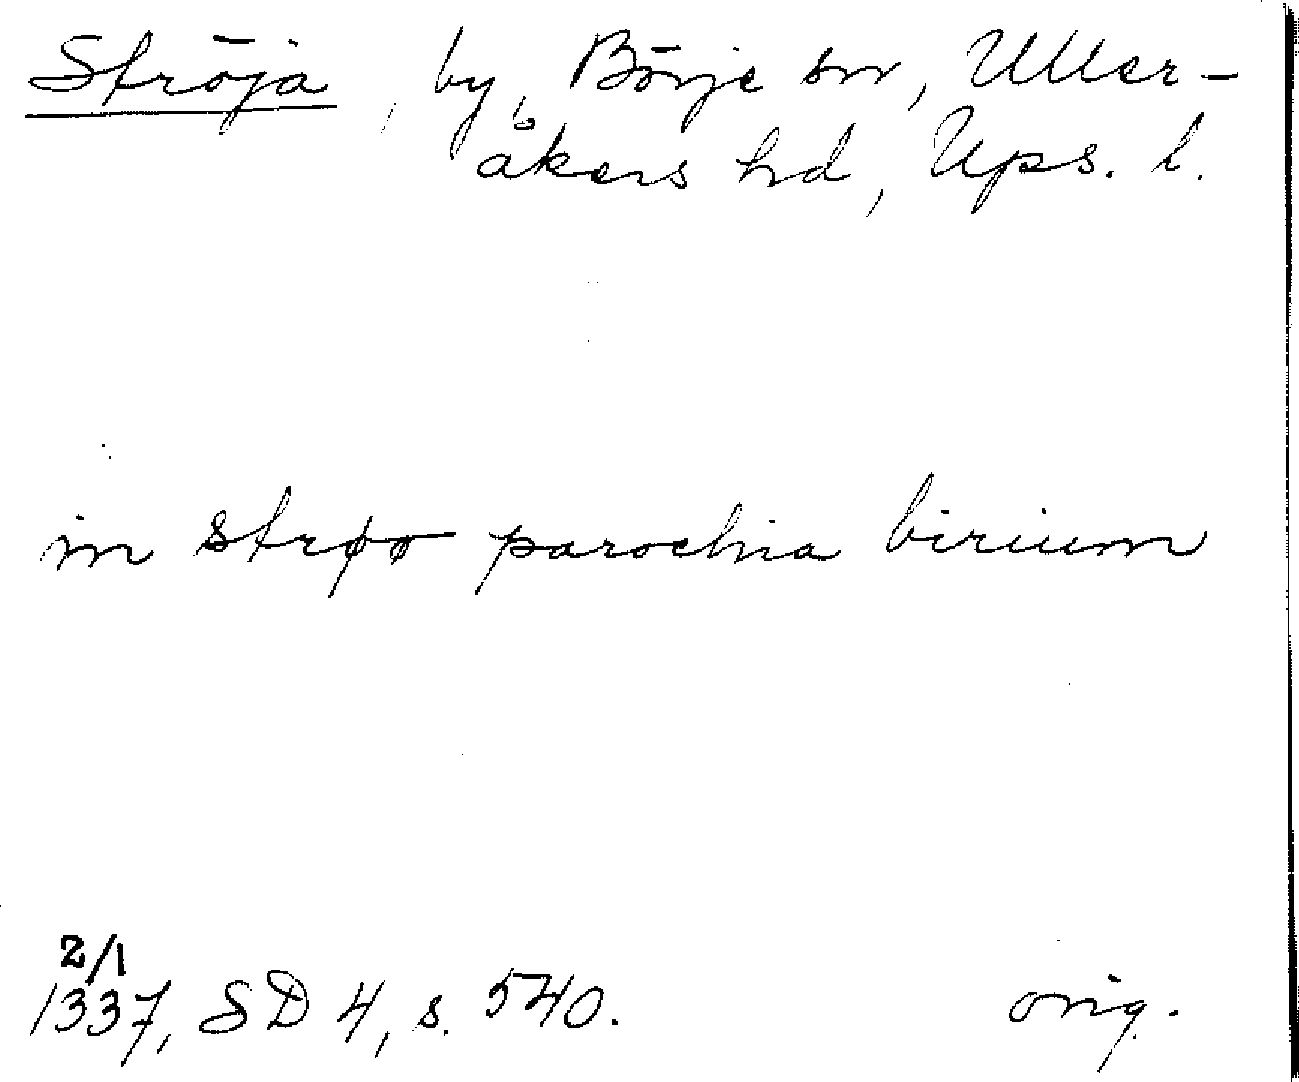 Ströja, by, Börje sn, Uller-
åkers hd, Ups. l.
in strøø parochia birium
2/1
1337, SD 4, s. 540. orig.